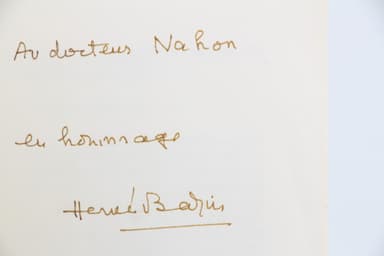 Au docteur Nahon
en hommage
Hervé Bazin